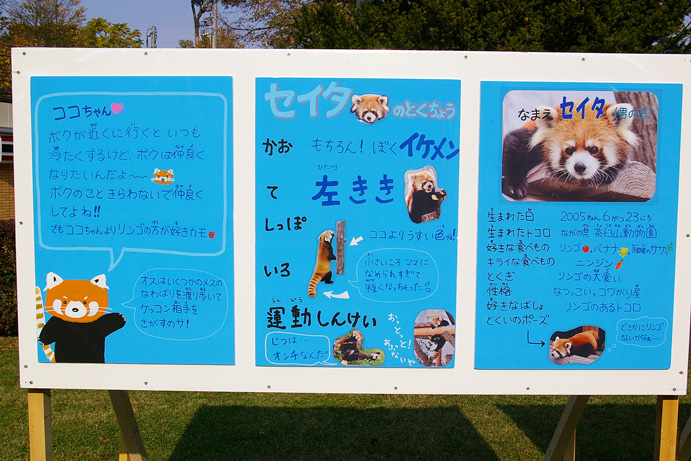 ココちゃん
ボクが近くに行くと いつも
冷たくするけど、ボクは仲良く
なりたいんだよ〜〜
ボクのこときらわないで仲良く
してよね!!
でもココちゃんよりリンゴの方が好きカモ
オスはいくつかのメスの
なわばりを渡り歩いて
ケッコン相手を
さがすのサ!
セイタのとくちょう
かお もちろん! ぼくイケメン
て ひだり
左きき
しっぽ
ココよりうすい色ね!
いろ
小さいころ ママに
なめられすぎて
短くなっちゃった?
うん どう
運動しんけい
じつは…
オンチなんだ!!
おっ、とっ、と!
あぶない
なまえ セイタ (男の子)
生まれた日 2005ねん 6がつ 23にち
生まれたトコロ ながの県 茶臼山動物園
好きな食べもの リンゴ、バナナ
キライな食べもの ニンジン
とくぎ リンゴの大食い
性格 なつっこい。コワがり屋
好きなばしょ リンゴのあるトコロ
とくいのポーズ
どこかにリンゴ
ないかなぁ…